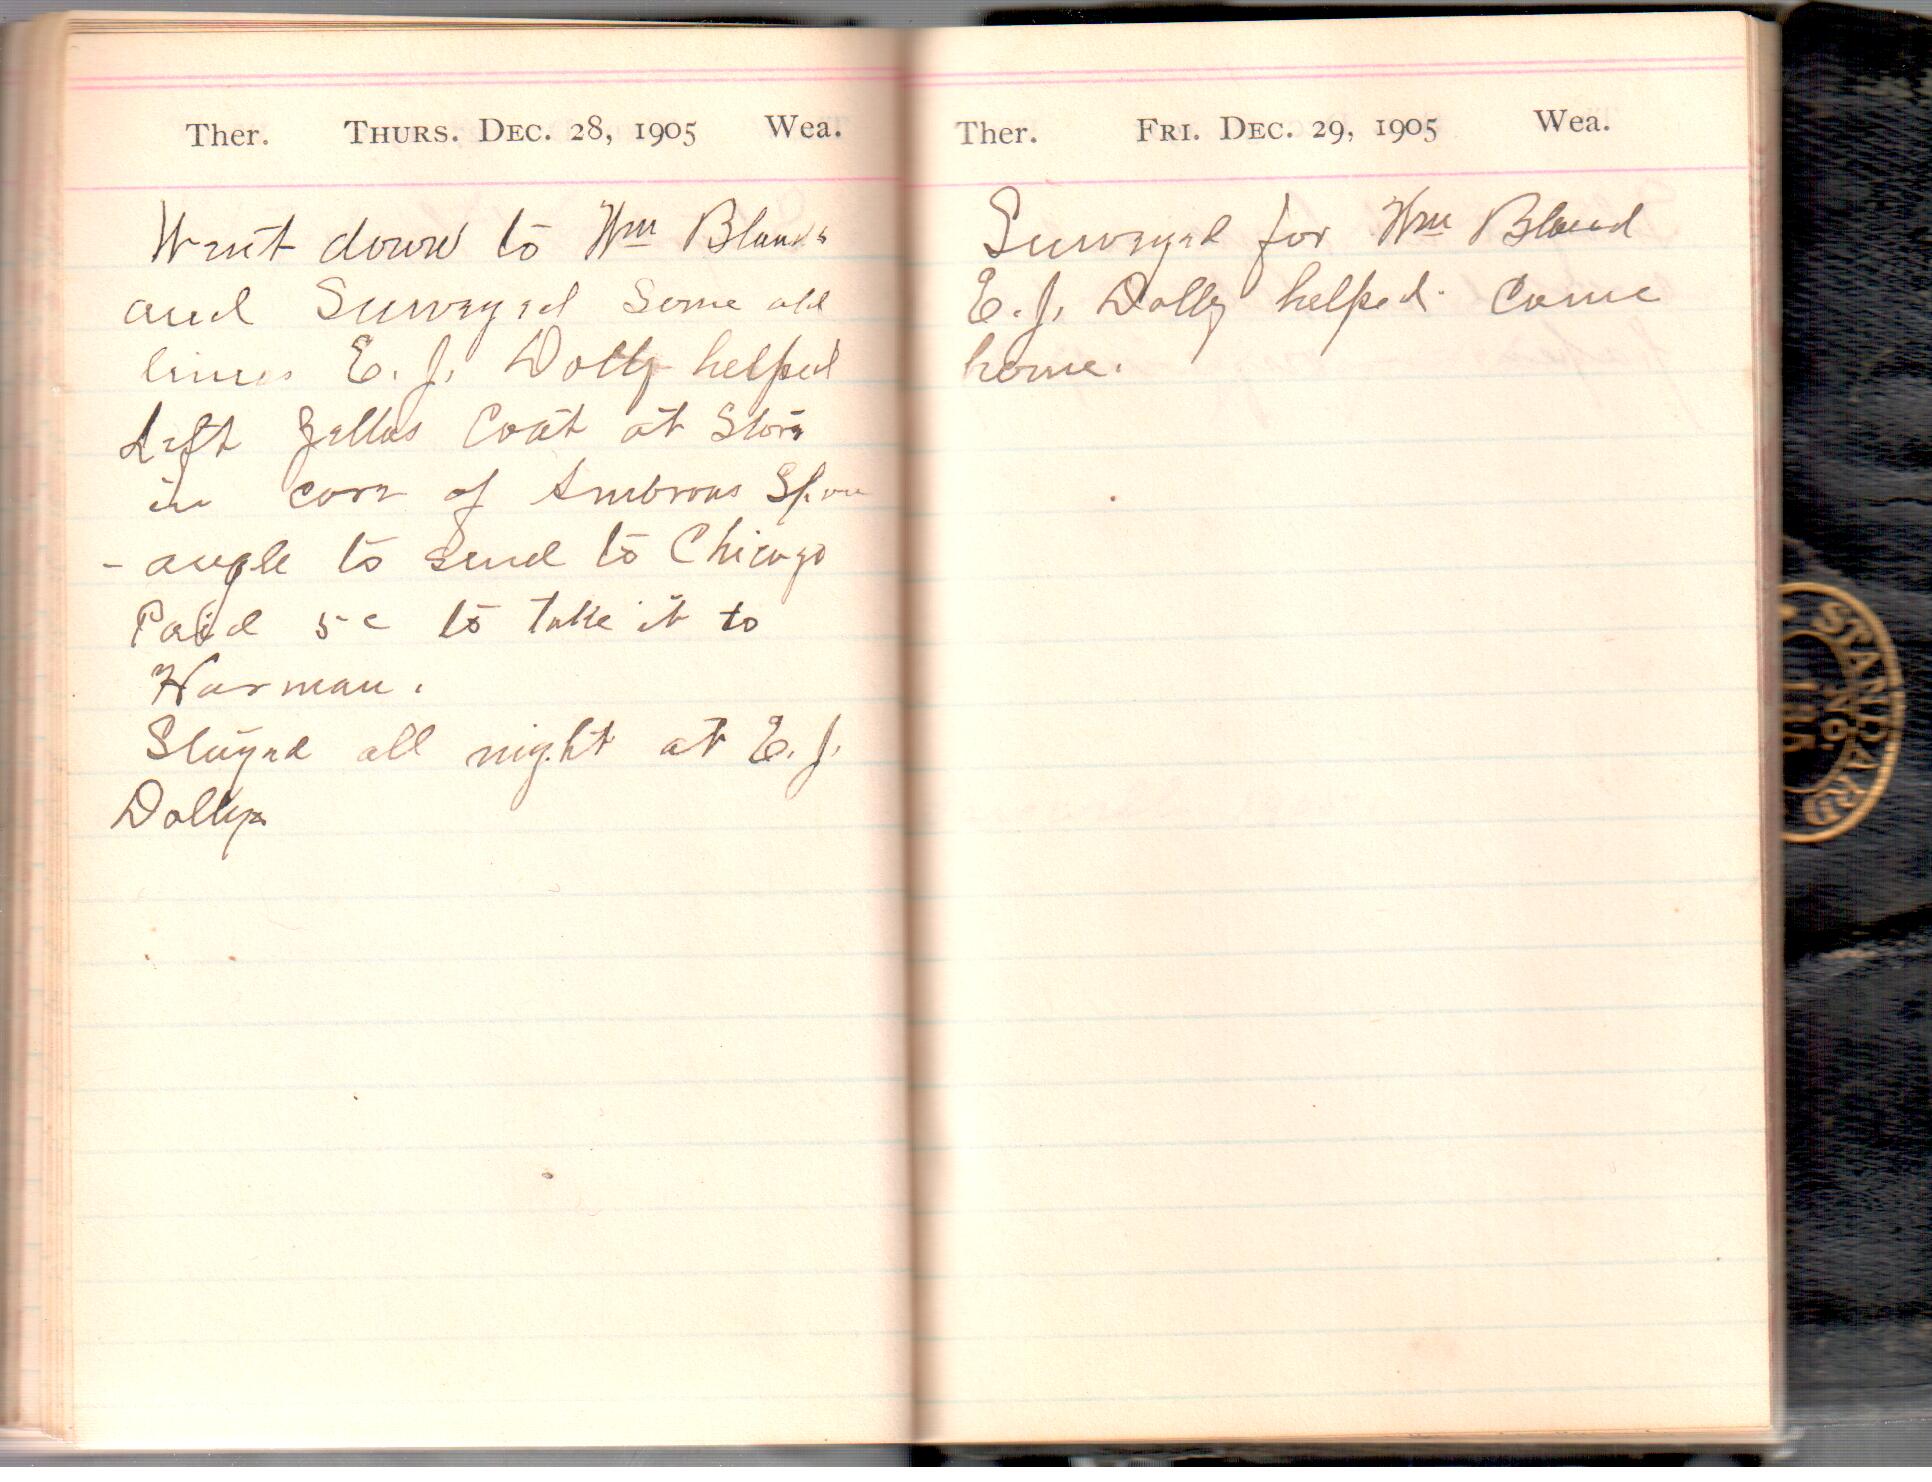 Ther. THURS. DEC. 28, 1905 Wea.
Went down to Wm Blands
and Surveyed Some old
lines E. J. Dolly helped
Left Zellas Coat at Store
in care of Ambrous Spon
- augle to Send to Chicago
Paid 5c to take it to
Harman.
Stayed all night at E. J.
Dollys
Ther. FRI. DEC. 29, 1905 Wea.
Surveyed for Wm Bland
E. J. Dolly helped. Came
home.
STANDARD
NO.